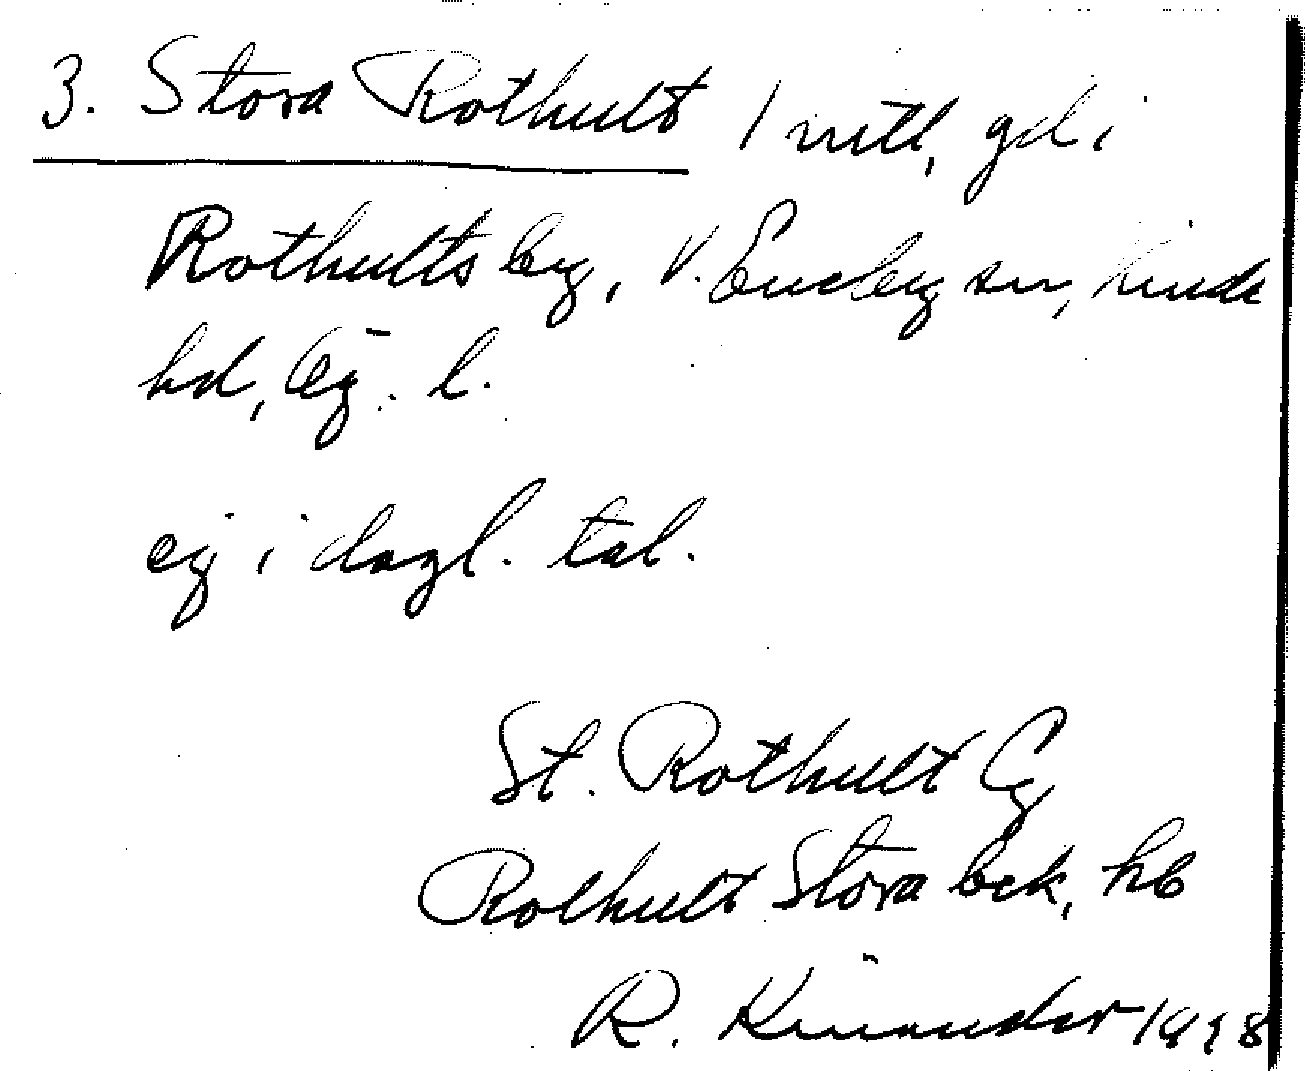 3. Stora Rothult 1 mtl, gd i
Rothults by, V. Eneby sn, Kinda
hd, Ög. l.
ej i dagl. tal.
St. Rothult
Rothult Stora bek, hb
R. Kinander 1978